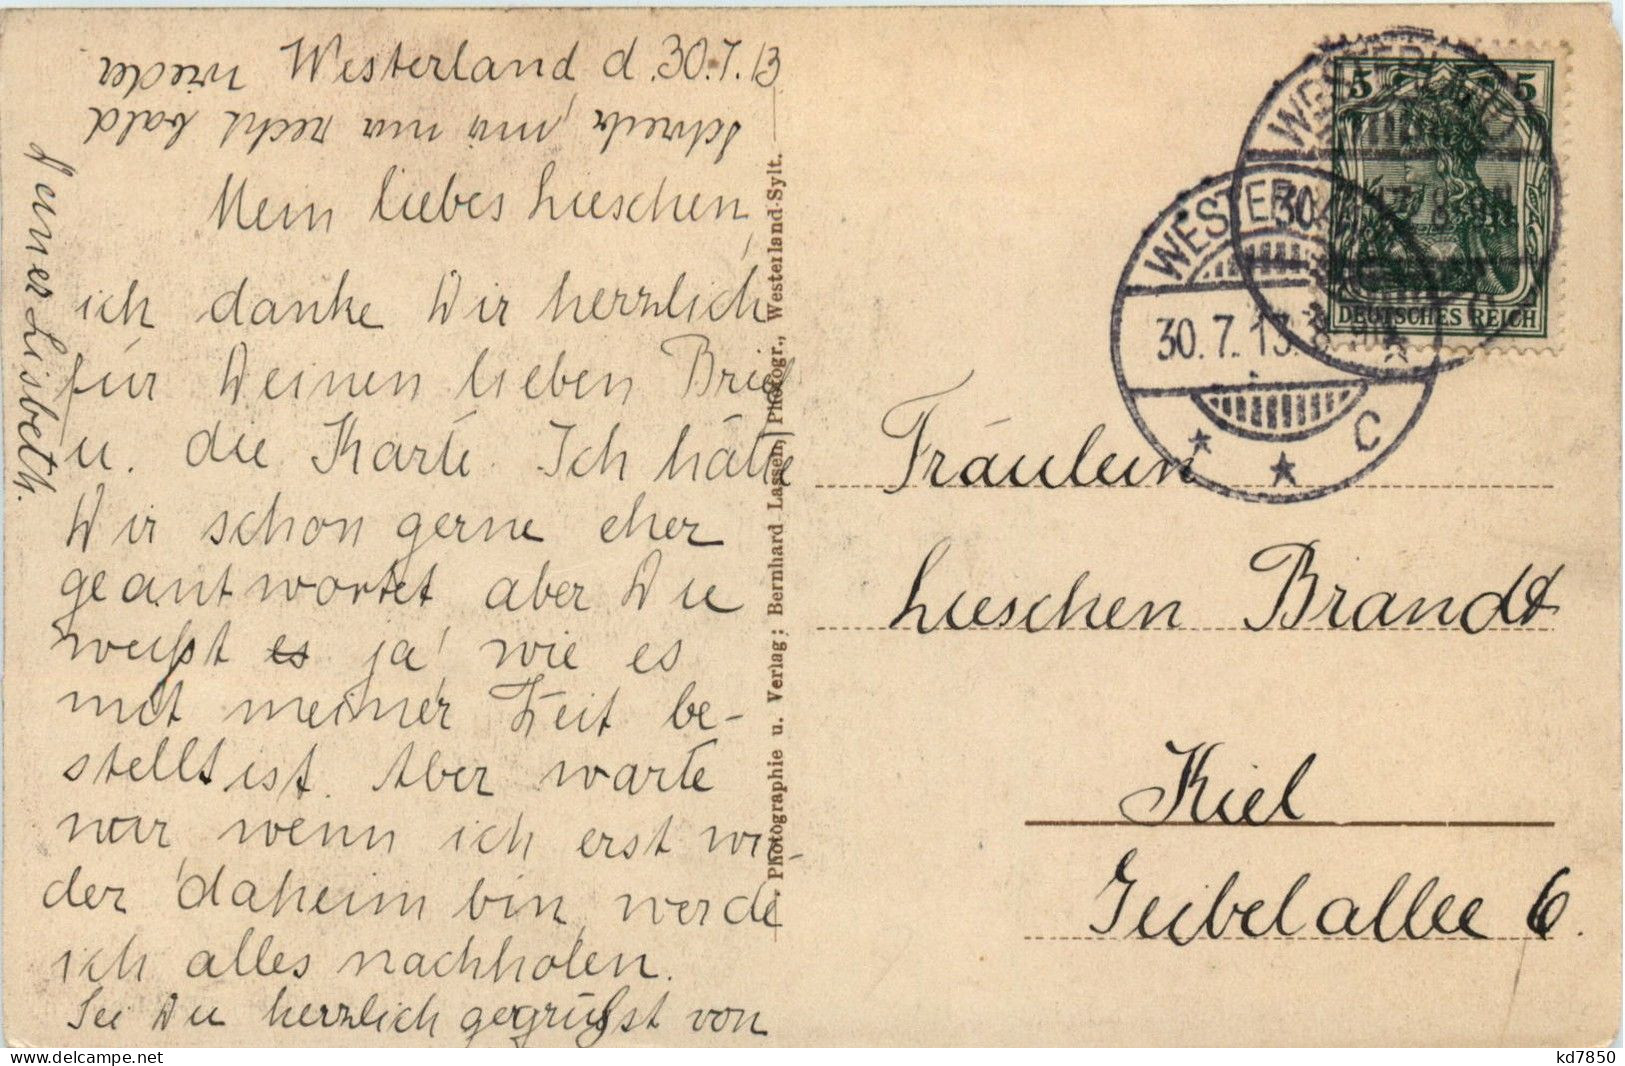 Westerland d. 30.7.13
Mein liebes Lieschen,
ich danke Dir herzlich
für Deinen lieben Brief
u. die Karte. Ich hätte
Dir schon gerne eher
geantwortet aber Du
weißt es ja, wie es
mit meiner Zeit be-
stellt ist. Aber warte
nur wenn ich erst wie-
der daheim bin, werde
ich alles nachholen.
Sei Du herzlich gegrüßt von
Deiner Lisbeth.
schreib' mir nur recht bald
wieder
Photographie u. Verlag; Bernhard Lassen, Photogr., Westerland-Sylt.
5 5
DEUTSCHES REICH
WESTERLAND
30.7.13. 8-9N
WESTERLAND
30.7.13. 8-9N
* * C
Fräulein
Lieschen Brandt
Kiel
Geibelallee 6.
kd7850